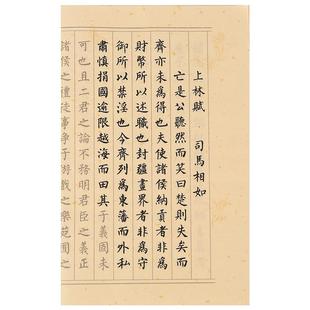 上林賦 司馬相如
亡是公聽然而笑曰楚則失矣而
齊亦未為得也夫使諸侯納貢者非為
財幣所以述職也封疆畫界者非為守
御所以禁淫也今齊列為東藩而外私
肅慎捐國逾限越海而田其于義固未
可也且二君之論不務明君臣之義正
諸侯之禮徒事爭于游戲之樂苑囿之